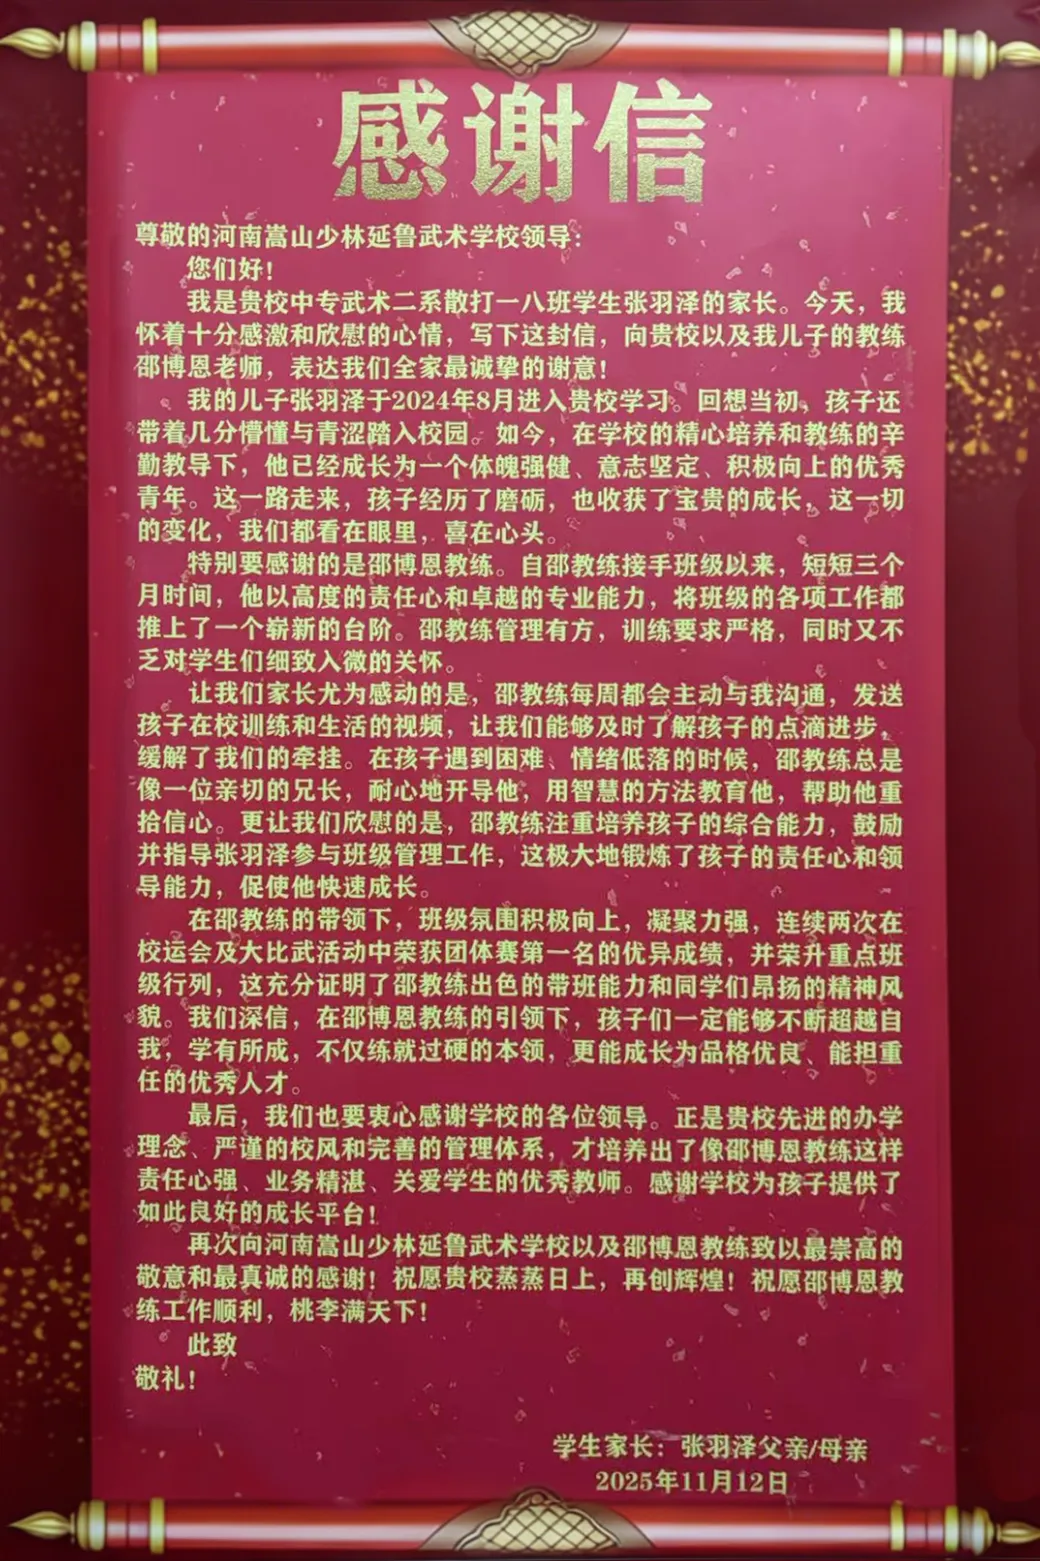 感谢信
尊敬的河南嵩山少林延鲁武术学校领导：
您们好！
我是贵校中专武术二系散打一八班学生张羽泽的家长。今天，我
怀着十分感激和欣慰的心情，写下这封信，向贵校以及我儿子的教练
邵博恩老师，表达我们全家最诚挚的谢意！
我的儿子张羽泽于2024年8月进入贵校学习。回想当初，孩子还
带着几分懵懂与青涩踏入校园。如今，在学校的精心培养和教练的辛
勤教导下，他已经成长为一个体魄强健、意志坚定、积极向上的优秀
青年。这一路走来，孩子经历了磨砺，也收获了宝贵的成长，这一切
的变化，我们都看在眼里，喜在心头。
特别要感谢的是邵博恩教练。自邵教练接手班级以来，短短三个
月时间，他以高度的责任心和卓越的专业能力，将班级的各项工作都
推上了一个崭新的台阶。邵教练管理有方，训练要求严格，同时又不
乏对学生们细致入微的关怀。
让我们家长尤为感动的是，邵教练每周都会主动与我沟通，发送
孩子在校训练和生活的视频，让我们能够及时了解孩子的点滴进步，
缓解了我们的牵挂。在孩子遇到困难、情绪低落的时候，邵教练总是
像一位亲切的兄长，耐心地开导他，用智慧的方法教育他，帮助他重
拾信心。更让我们欣慰的是，邵教练注重培养孩子的综合能力，鼓励
并指导张羽泽参与班级管理工作，这极大地锻炼了孩子的责任心和领
导能力，促使他快速成长。
在邵教练的带领下，班级氛围积极向上，凝聚力强，连续两次在
校运会及大比武活动中荣获团体赛第一名的优异成绩，并荣升重点班
级行列，这充分证明了邵教练出色的带班能力和同学们昂扬的精神风
貌。我们深信，在邵博恩教练的引领下，孩子们一定能够不断超越自
我，学有所成，不仅练就过硬的本领，更能成长为品格优良、能担重
任的优秀人才。
最后，我们也要衷心感谢学校的各位领导。正是贵校先进的办学
理念、严谨的校风和完善的管理体系，才培养出了像邵博恩教练这样
责任心强、业务精湛、关爱学生的优秀教师。感谢学校为孩子提供了
如此良好的成长平台！
再次向河南嵩山少林延鲁武术学校以及邵博恩教练致以最崇高的
敬意和最真诚的感谢！祝愿贵校蒸蒸日上，再创辉煌！祝愿邵博恩教
练工作顺利，桃李满天下！
此致
敬礼！
学生家长：张羽泽父亲/母亲
2025年11月12日